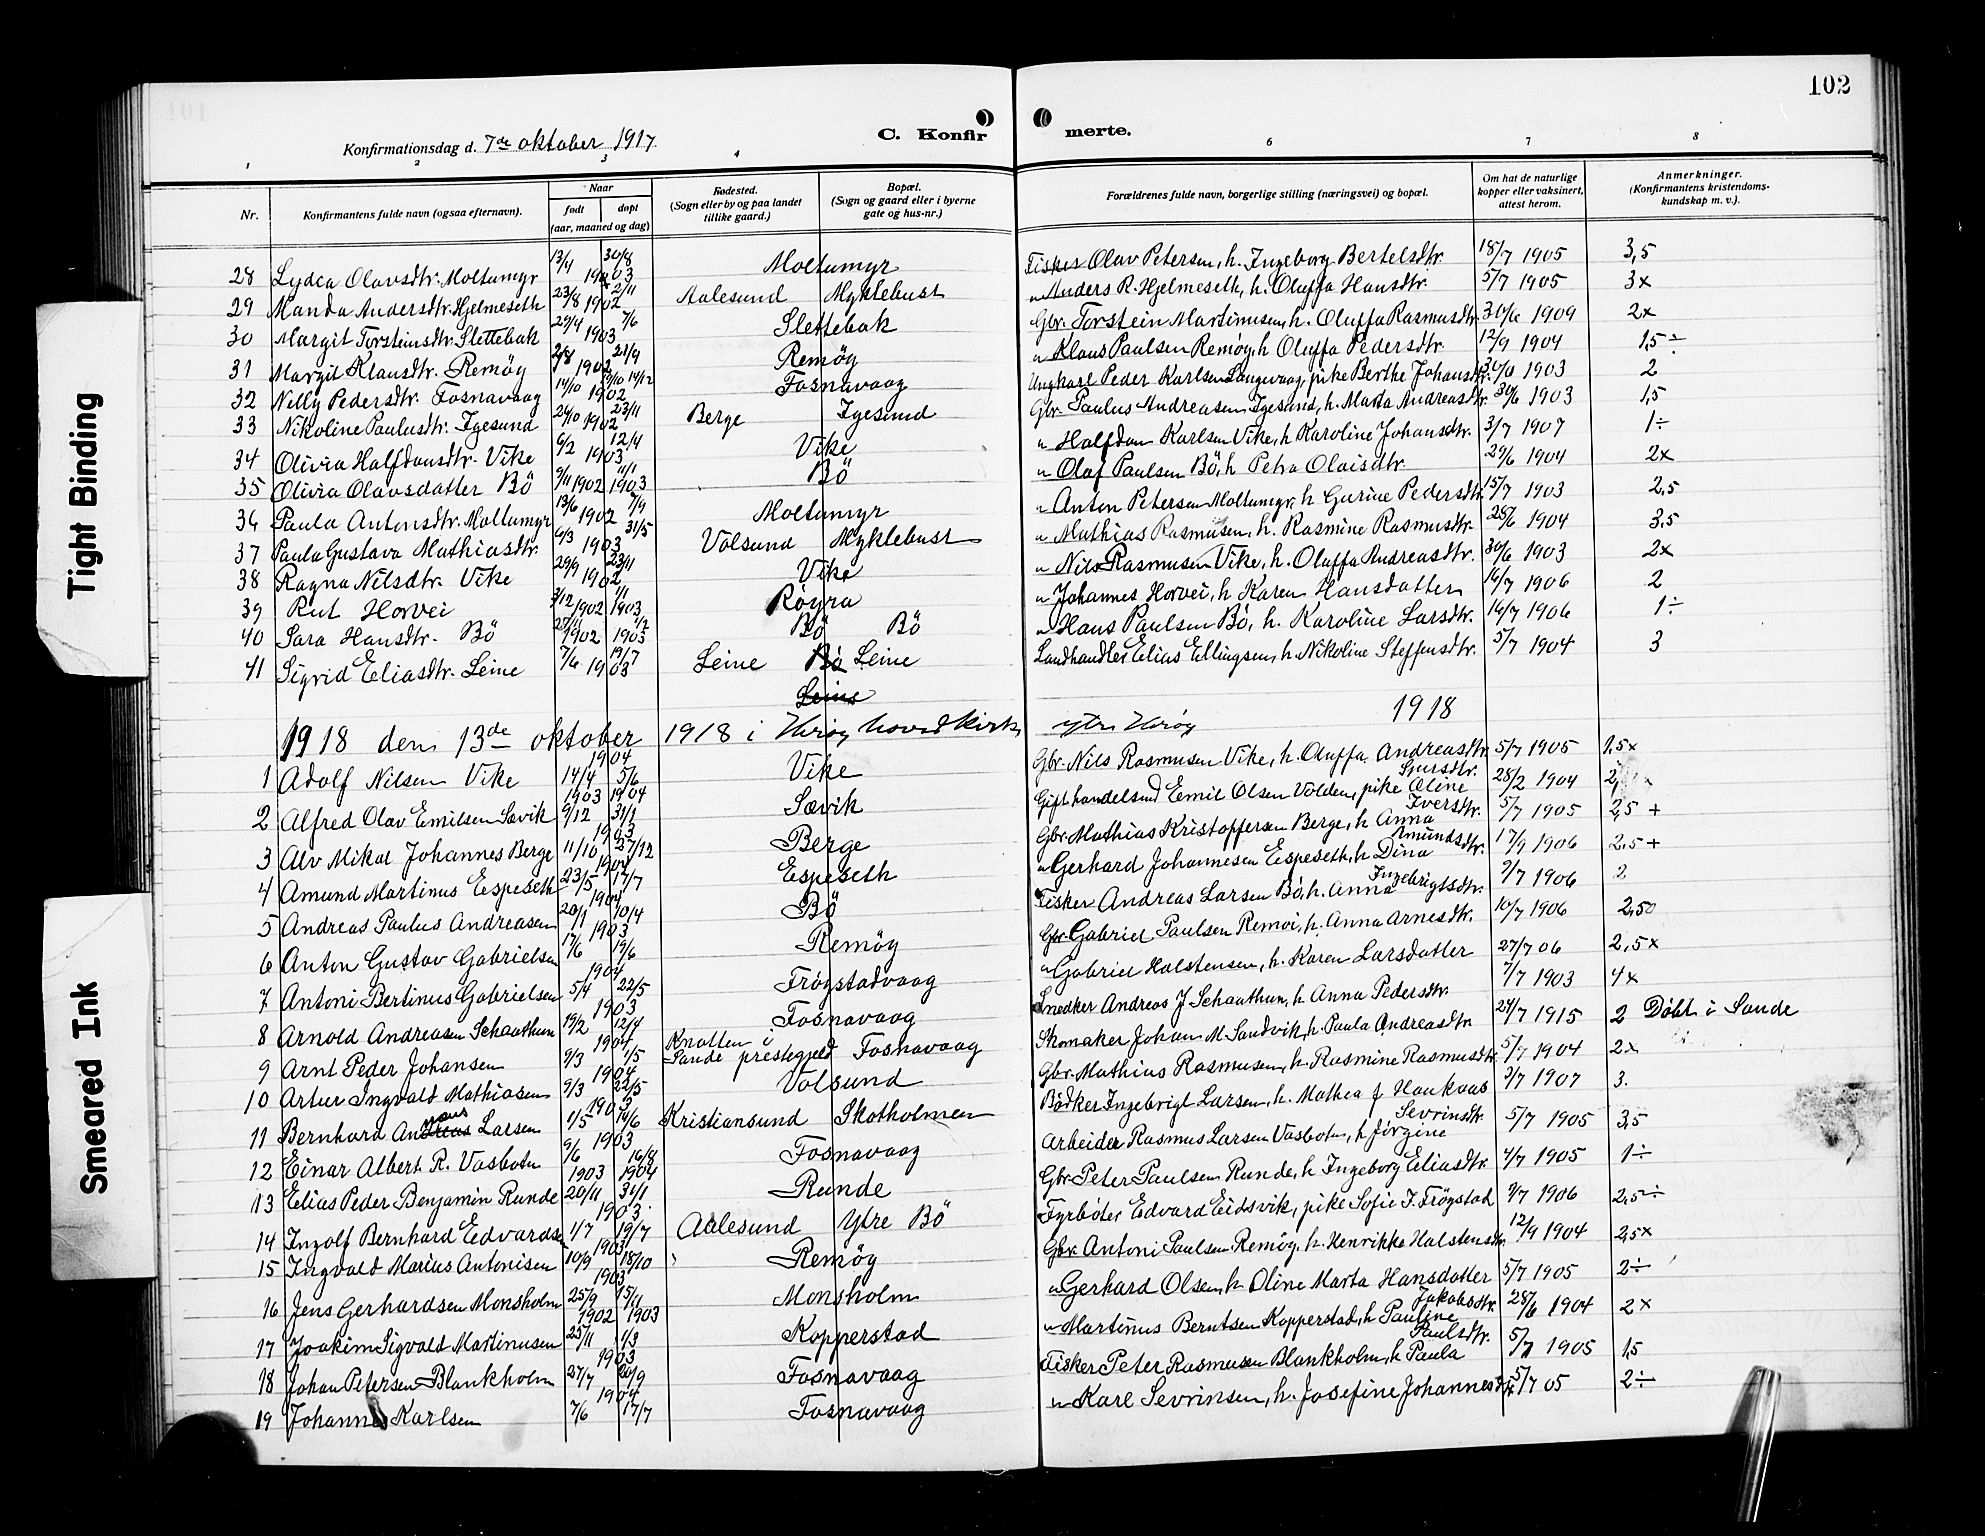 102
Konfirmationsdag d. 7de oktober 1917.
C. Konfirmerte.
1 2 3 4 6 7 8
Nr. Konfirmantens fulde navn (ogsaa efternavn). Naar født døpt (aar, maaned og dag) Fødested. (Sogn eller by og paa landet tillike gaard.) Bopæl. (Sogn og gaard eller i byerne gate og hus-nr.) Forældrenes fulde navn, borgerlige stilling (næringsvei) og bopæl. Om hat de naturlige kopper eller vaksinert, attest herom. Anmerkninger. (Konfirmantens kristendomskundskap m. v.).
28 Lydea Olavsdtr. Moltumyr 13/4 30/8 1903 Moltumyr Fisker Olav Petersen, h. Ingeborg Bertelsdtr 18/7 1905 3,5
29 Manda Andersdtr. Hjelmeseth 23/8 2/11 1902 Aalesund Myklebust " Anders R. Hjelmeseth, h. Oluffa Hansdtr. 5/7 1905 3x
30 Margit Torsteinsdtr. Slettebak 29/4 7/6 1903 Slettebak Gbr. Torstein Martinusen, h. Oluffa Rasmusdtr. 30/6 1909 2x
31 Margit Klausdtr. Remöy 2/8 21/9 1902 Remöy " Klaus Paulsen Remöy, h Oluffa Pedersdtr. 12/9 1904 1,5÷
32 Nelly Pedersdtr. Fosnavaag 14/10 14/12 1902 Fosnavaag Ungkarl Peder Karlsen Langevaag, pike Berthe Johansdtr. 1903 2
33 Nikoline Paulusdtr. Igesund 24/10 23/11 1902 Berge Igesund Gbr. Paulus Andreasen Igesund, h. Marta Andreasdtr. 30/6 1903 1,5
34 Olivia Halfdansdtr. Vike 6/2 12/4 1903 Vike " Halfdan Karlsen Vike, h. Karoline Johansdtr. 3/7 1907 1÷
35 Olivia Olavsdatter Bö 9/11 1902 11/1 1903 Bö " Olaf Paulsen Bö, h Petra Olaisdtr. 29/6 1904 2x
36 Paula Antonsdtr. Moltumyr 13/6 7/9 1902 Moltumyr " Anton Petersen Moltumyr, h Gurine Pedersdtr. 15/7 1903 2,5
37 Paula Gustava Mathiasdtr. 6/3 31/5 1903 Volsund Myklebust " Mathias Rasmusen, h. Rasmine Rasmusdtr. 28/6 1904 3,5
38 Ragna Nilsdtr. Vike 29/9 23/11 1902 Vike " Nils Rasmusen Vike, h. Oluffa Andreasdtr. 30/6 1903 2x
39 Rut Horvei 3/12 1902 1/1 1903 Röyra " Johannes Horvei, h Karen Hansdatter 16/7 1906 2
40 Sara Hansdtr. Bö 1902 1903 Bö Bö " Hans Paulsen Bö, h. Karoline Larsdtr. 16/7 1906 1÷
41 Sigrid Eliasdtr. Leine 7/6 19/7 1903 Leine Bö Leine Landhandler Elias Ellingsen, h. Nikoline Steffensdtr. 5/7 1904 3
Leine
1918 den 13de oktober 1918 i Heröy hovedkirke ytre Heröy 1918
1 Adolf Nilsen Vike 14/4 5/6 1904 Vike Gbr. Nils Rasmusen Vike, h. Oluffa Andreasdtr. 5/7 1905 1,5x
2 Alfred Olav Emilsen Sævik 9/12 1903 31/1 1904 Sævik Gift handelsmd Emil Olsen Volden, pike Oline 28/2 1904
3 Alv Mikal Johannes Berge 11/10 27/12 1903 Berge Gbr. Mathias Kristoffersen Berge, h Anna Iversdtr. 5/7 1905 2,5 +
4 Amund Martinus Espeseth 23/5 17/7 1904 Espeseth " Gerhard Johannesen Espeseth, h Dina Amundsdtr. 17/9 1906 2,5+
5 Andreas Paulus Andreasen 20/1 10/4 1904 Bö Fisker Andreas Larsen Bö, h. Anna Ingebrigtsdtr. 2/7 1906 2
6 Anton Gustav Gabrielsen 17/6 19/6 1903 Remöy Gbr. Gabriel Paulsen Remöi, h. Anna Arnesdtr. 10/7 1906 2,50
7 Antoni Bertinus Gabrielsen 5/4 22/5 1904 Frögstadvaag " Gabriel Halstensen, h. Karen Larsdatter 27/7 06 2,5x
8 Arnold Andreasen Schaathun 19/2 12/4 1903 Fosnavaag Snedker Andreas J Schaathun, h. Anna Pedersdtr. 7/7 1903 4x
9 Arnt Peder Johansen 9/3 1/5 1904 Knotten i Sande prestegjeld Fosnavaag Skomaker Johan M. Sandvik, h. Paula Andreasdtr 24/7 1915 2 Döbt i Sande
10 Artur Ingvald Mathiasen 9/3 22/5 1904 Volsund Gbr. Mathias Rasmusen, h. Rasmine Rasmusdtr. 5/7 1904 2x
11 Bernhard Andreas Larsen 1/5 14/6 Kristiansund Skotholmen Bödker Ingebrigt Larsen, h. Mathea J Haukaas 3/7 1907 3.
12 Einar Albert R. Vasboten 9/6 16/8 1903 Fosnavaag Arbeider Rasmus Larsen Vasboten, h Jörgine Sevrinsdtr 5/7 1905 3,5
13 Elias Peder Benjamin Runde 20/11 1903 31/1 1904 Runde Gbr. Peter Paulsen Runde, h Ingeborg Eliasdtr. 4/7 1905 1÷
14 Ingolf Bernhard Edvardsen 1/7 19/7 1903 Aalesund Ytre Bö Fyrböter Edvard Eidsvik, pike Sofie I. Frögstad 2/7 1906 2,5÷
15 Ingvald Marius Antonisen 10/9 18/10 1903 Remöy Gbr. Antoni Paulsen Remöy, h. Henrikke Halstensdtr. 12/9 1904 2,5x
16 Jens Gerhardsen Monsholm 25/9 15/11 1903 Monsholm " Gerhard Olsen, h. Oline Marta Hansdatter 5/7 1905 2÷
17 Joakim Sigvald Martinusen 25/11 1902 1/3 1903 Kopperstad " Martinus Berntsen Kopperstad, h Pauline Jakobsdtr. 28/6 1904 2x
18 Johan Petersen Blankholm 27/7 20/9 1903 Fosnavaag Fisker Peter Rasmusen Blankholm, h Paula Paulsdtr. 5/7 1905 1,5
19 Johannes Karlsen 7/6 17/7 1904 Fosnavaag " Karl Sevrinsen, h. Josefine Johannesdtr 5/7 05 2÷
Tight Binding
Smeared Ink